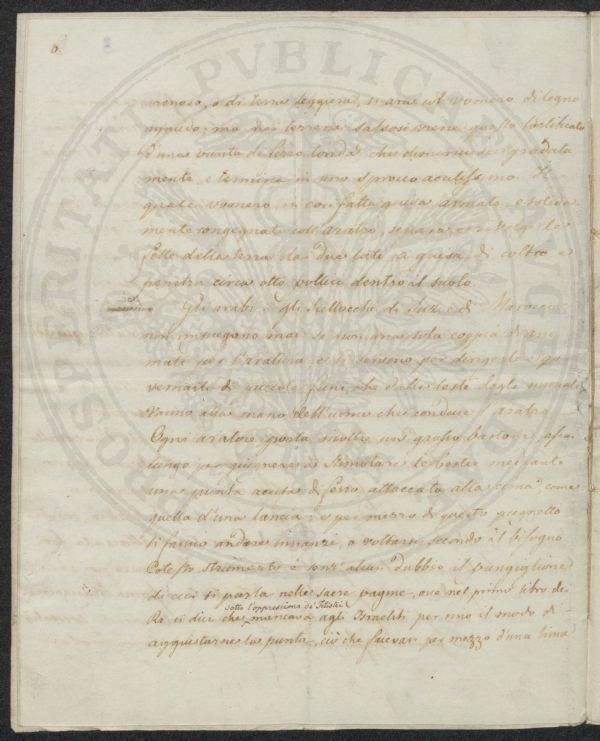 6
arenoso, o di terra leggiera, si ara col vomero di legno
ignudo; ma nei terreni sassosi viene questo fortificato
d'una di ferro tonda che diminuisce grada ta
mente, e termina in uno sprocco acutissimo. Il
quale vomero, in cosifatta guisa armato, e solida
mente congegnato coll'aratro, separa, e
fette della terra da due lati a guisa di coltro e
penetra circa otto pollici dentro il suolo.
Gli arabi e gli Scellocchi di Suz e di Marocco
non impiegano mai se non una sola coppia di ani
mali per l'aratura, e si servono per dirigerli e go
vernarli di piccole funi, che dalle teste degli animali
vanno alla mano dell'uomo che conduce l'aratro.
Ogni aratore porta inoltre un grosso bastone, assai
lungo per giugnere a stimolare le bestie mediante
una punta acuta di ferro attaccata alla cima come
quella d'una lancia: e per mezzo di questo
si fanno andare innanzi, o voltare secondo il bisogno
Cotesto strumento è senz' alcun dubbio il pungiglione
di cui si parla nelle sacre pagine, ove nel primo libro dei
Re ci dice che sotto l'oppressione de' Filistei mancava agli Israeliti per fino il modo di
aguistarne la punta, ciò che facevasi per mezzo d'una lima